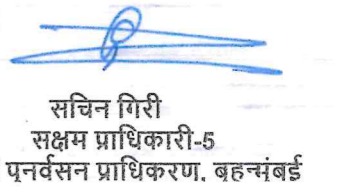 सचिन गिरी
सक्षम प्राधिकारी-5
पुनर्वसन प्राधिकरण, बृहन्मुंबई